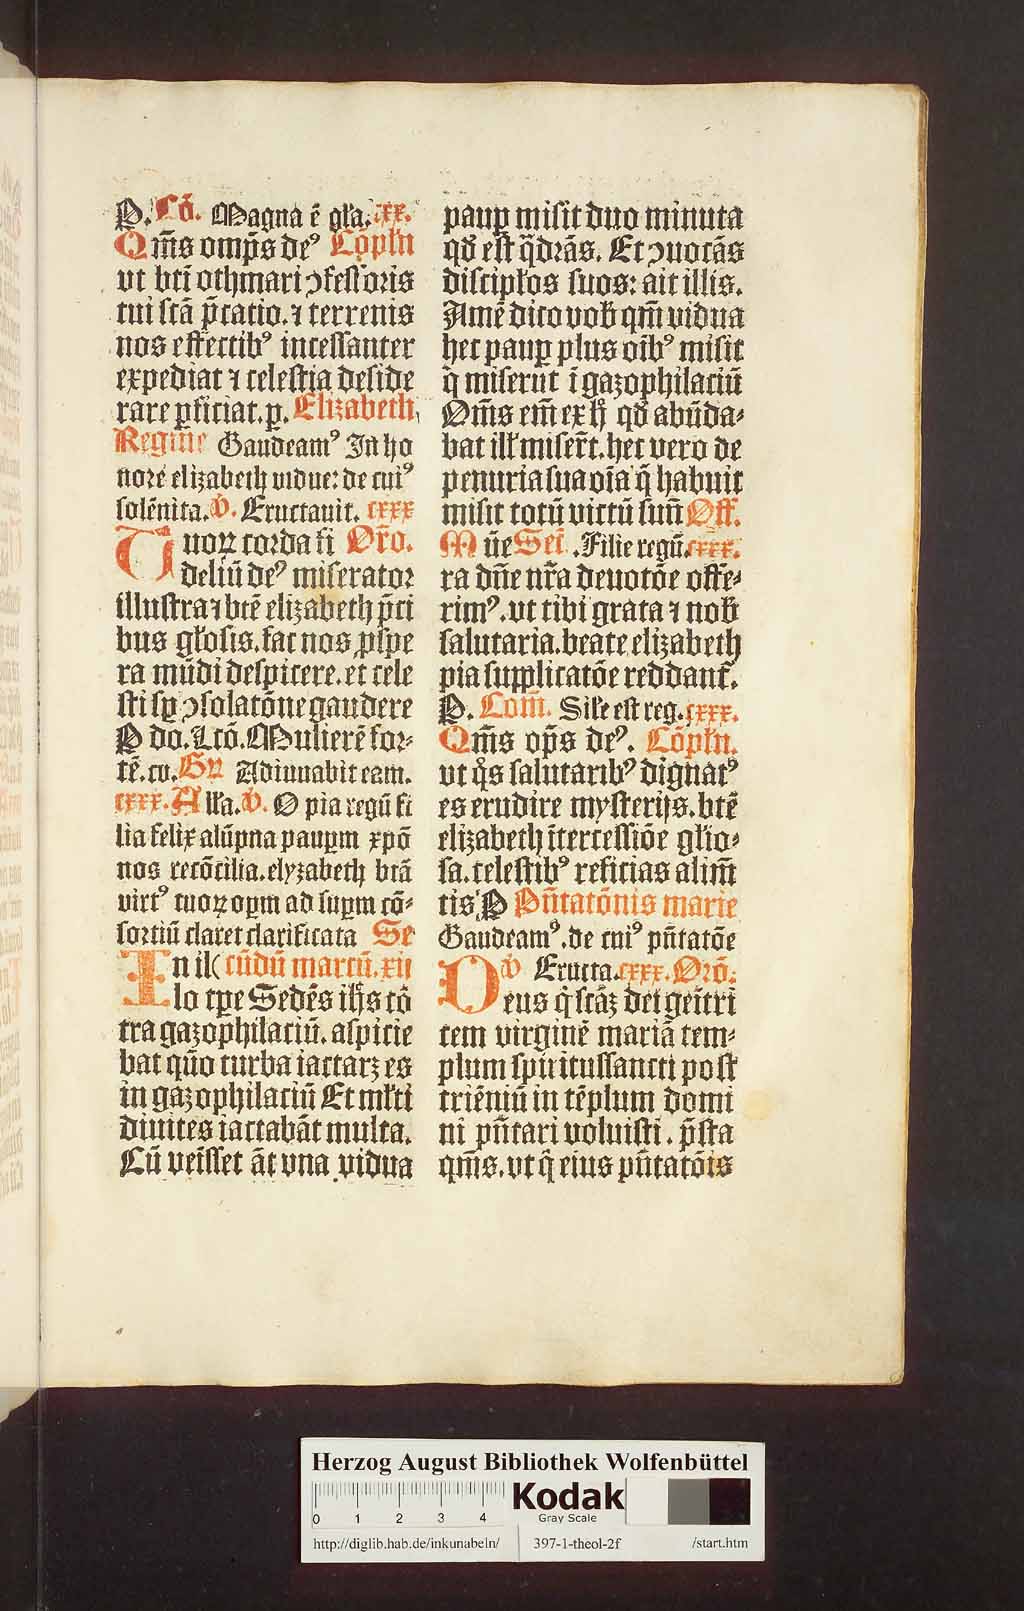 P. Cō. Magna ē gl̄a. xx.
Qm̄s omp̄s deꝰ Cōpln̄
vt bt̄i othmari ↄfessoris
tui scā p̄catio. ⁊ terrenis
nos effectibꝰ incessanter
expediat ⁊ celestia deside
rare ꝑficiat. p. Elizabeth
Regine Gaudeamꝰ In ho
nore elizabeth vidue: de cuiꝰ
solēnita. v̄. Eructauit. cxxx
Tuoꝝ corda fi Or̄o.
deliū deꝰ miserator
illustra ⁊ btē elizabeth p̄ci
bus gl̄osis. fac nos ꝓspe
ra mūdi despicere. et cele
sti sꝑ ↄsolatōne gaudere
P do. Lcō. Mulierē for⸗
tē. cv. Gr̄ Adiuuabit eam.
cxxx. Alla. v̄. O pia regū fi
lia felix alūpna pauꝑm xp̄o
nos recōcilia. elyzabeth btā
virtꝰ tuoꝝ oꝑm ad suꝑm cō⸗
sortiū claret clarificata Se
In il( cūdū marcū. xii
lo tꝑe Sedēs ih̄s cō
tra gazophilaciū. aspicie
bat qūo turba iactarꝫ es
in gazophilaciū Et ml̄ti
diuites iactabāt multa.
Cū veīsset āt vna vidua
pauꝑ misit duo minuta
qd̄ est q̄drās. Et ↄuocās
discipl̄os suos: ait illis.
Amē dico vob̄ qm̄ vidua
hec pauꝑ plus oībꝰ misit
q̄ miserūt ī gazophilaciū
Om̄s em̄ ex h̄ qd̄ abūda⸗
bat ill̄ miser̄t. hec vero de
penuria sua oīa q̄ habuit
misit totū victū suū Off.
Mūe Sec̄ . Filie regū. cxxx.
ra dn̄e nr̄a deuotōe offe⸗
rimꝰ. vt tibi grata ⁊ nob̄
salutaria. beate elizabeth
pia supplicatōe reddant̄.
P. Com̄. Sil̄e est reg. cxxx.
Qm̄s op̄s deꝰ. Cōpln̄.
vt q̊s salutaribꝰ dignatꝰ
es erudire mysterijs. btē
elizabeth ītercessiōe glīo⸗
sa. celestibꝰ reficias alim̄
tis P Pn̄tatōnis marie
Gaudeamꝰ. de cuiꝰ pn̄tatōe
v̄ Eructa. cxxx. Orō.
Deus q̇ scāꝫ dei geītri
cem virginē mariā tem⸗
plum spūitussancti post
triēniū in tēplum domi
ni pn̄tari voluisti . p̄sta
qm̄s. vt q̇ eius pn̄tatōis
Herzog August Bibliothek Wolfenbüttel
0 1 2 3 4
Kodak
Gray Scale
http://diglib.hab.de/inkunabeln/ 397-1-theol-2f /start.htm